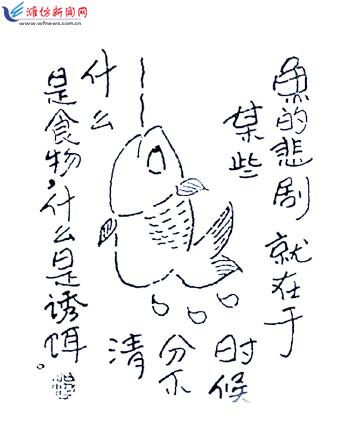 潍坊新闻网
www.wfnews.com.cn
鱼的悲剧就在于
某些
时候
分不
清
什么
是食物,什么是诱饵。